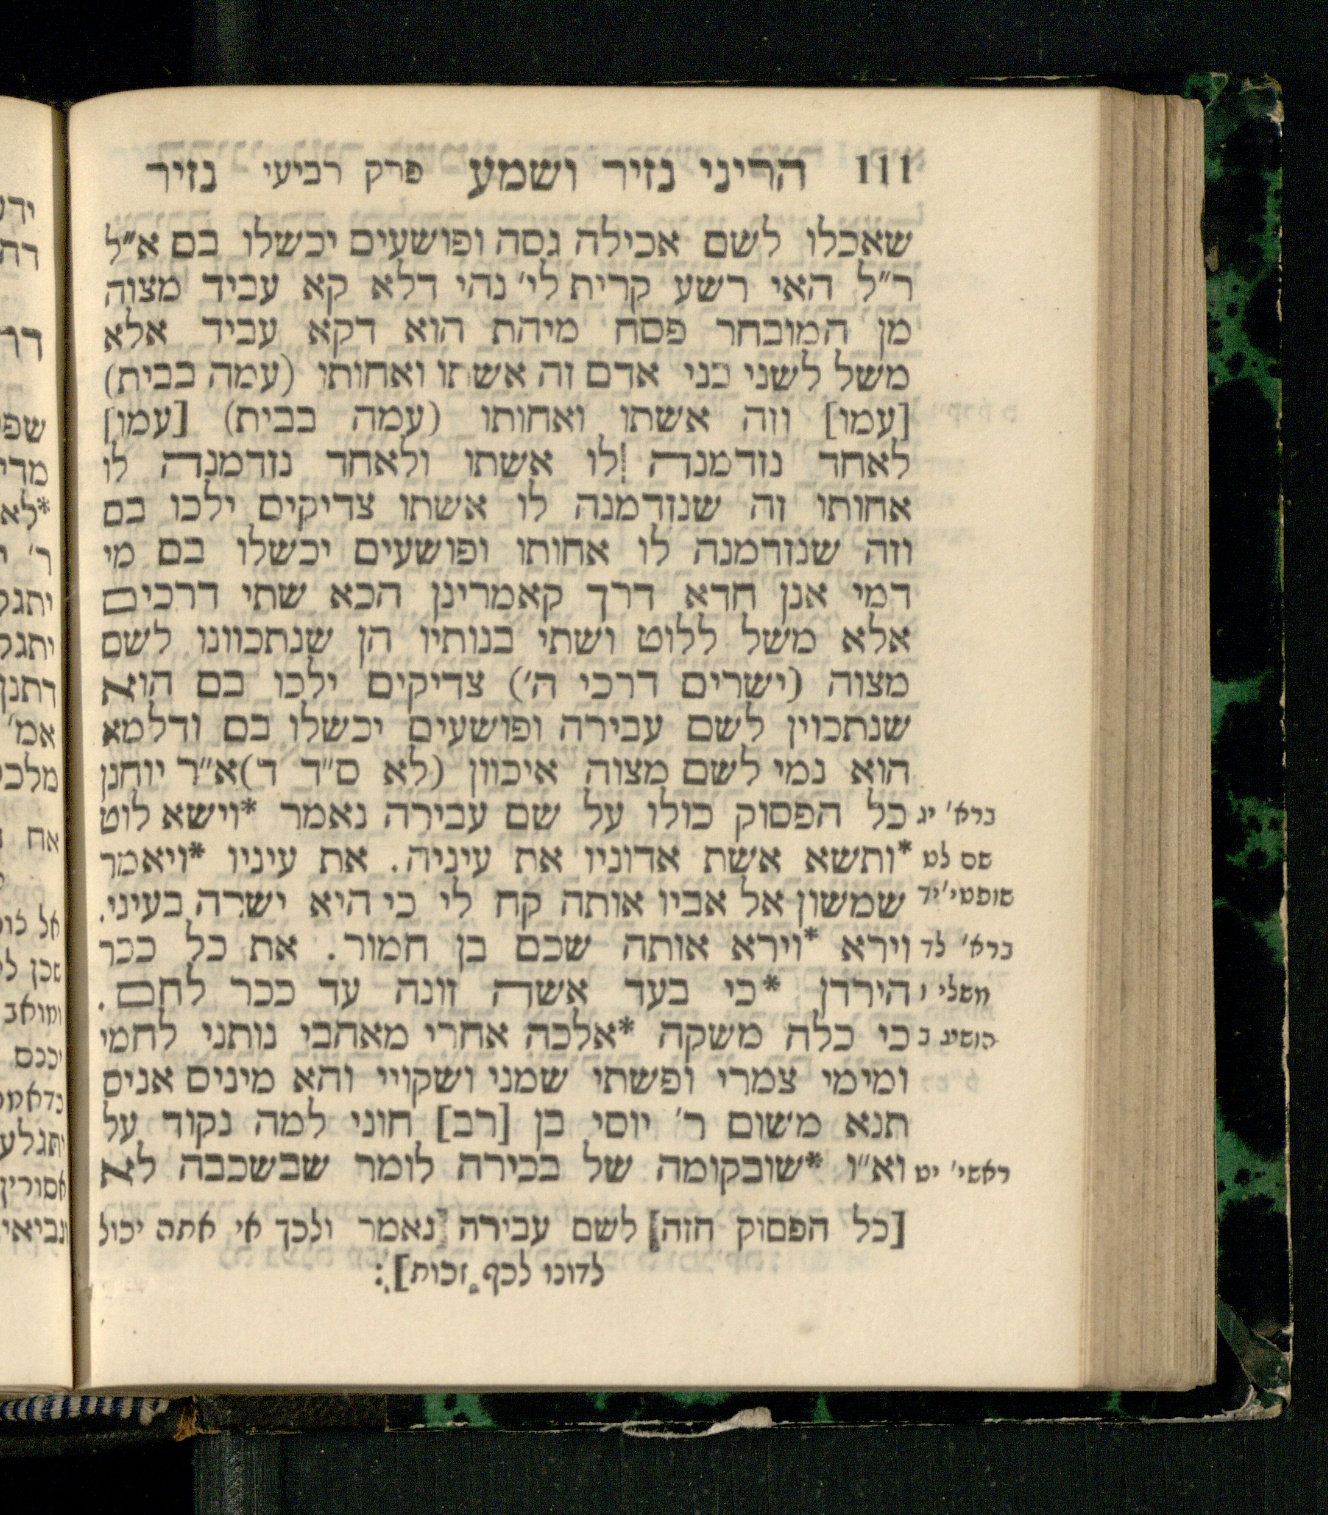 111 הריני נזיר ושמע פרק רביעי נזיר
שאכלו לשם אכילה גסה ופושעים יכשלו בם א״ל
ר״ל האי רשע קרית לי׳ נהי דלא קא עביד מצוה
מן המובחר פסח מיהת הוא דקא עביד אלא
משל לשני בני אדם זה אשתו ואחותו (עמה בבית)
[עמו] וזה אשתו ואחותו (עמה בבית) [עמו]
לאחד נזדמנה לו אשתו ולאחד נזדמנה לו
אחותו זה שנזדמנה לו אשתו צדיקים ילכו בם
וזה שנזדמנה לו אחותו ופושעים יכשלו בם מי
דמי אנן חדא דרך קאמרינן הכא שתי דרכים
אלא משל ללוט ושתי בנותיו הן שנתכוונו לשם
מצוה (ישרים דרכי ה׳) צדיקים ילכו בם הוא
שנתכוין לשם עבירה ופושעים יכשלו בם ודלמא
הוא נמי לשם מצוה איכוון (לא ס״ד ד)א״ר יוחנן
ברא׳ יג כל הפסוק כולו על שם עבירה נאמר *וישא לוט
שם לט *ותשא אשת אדוניו את עיניה. את עיניו *ויאמר
שופטי׳ יד שמשון אל אביו אותה קח לי כי היא ישרה בעיני.
ברא׳ לד וירא *וירא אותה שכם בן חמור. את כל ככר
משלי ו הירדן *כי בעד אשה זונה עד ככר לחם.
הושע ב כי כלה משקה *אלכה אחרי מאהבי נותני לחמי
ומימי צמרי ופשתי שמני ושקויי והא מינים אניס
תנא משום ר׳ יוסי בן [רב] חוני למה נקוד על
ראשי׳ יט וא״ו *שובקומה של בכירה לומר שבשכבה לא
[כל הפסוק הזה] לשם עבירה נאמר ולכך אי אתה יכול
לדונו לכף זכות]: